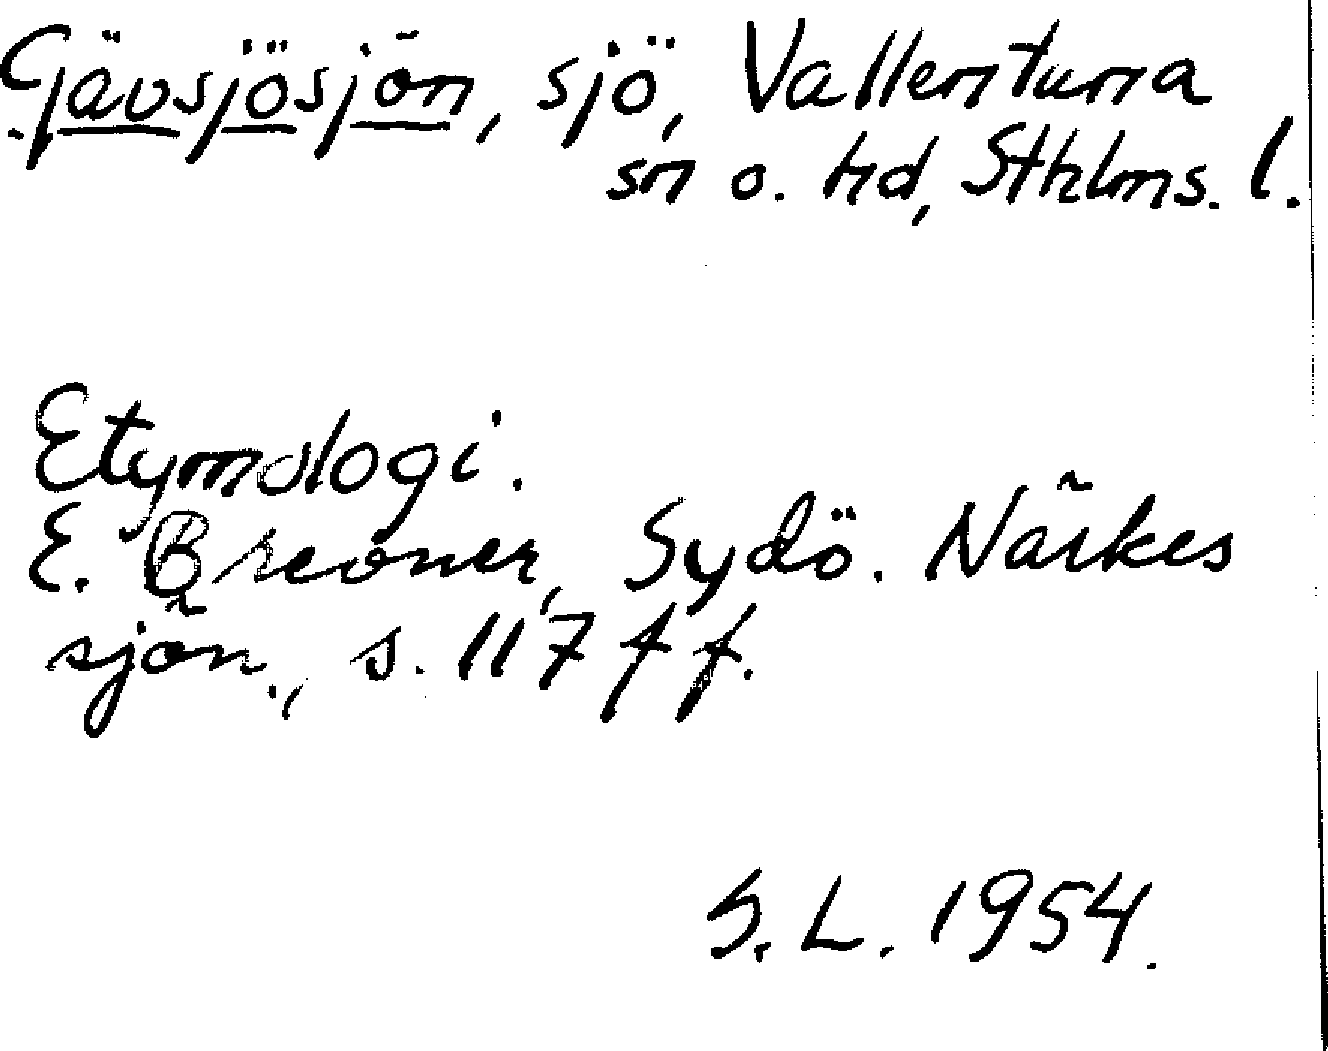 Gjävsjösjön, sjö, Vallentuna
sn o. hd, Sthlms. l.
Etymologi.
E. Brevner, Sydö. Närkes
sjön., s. 117 ff.
S. L. 1954.